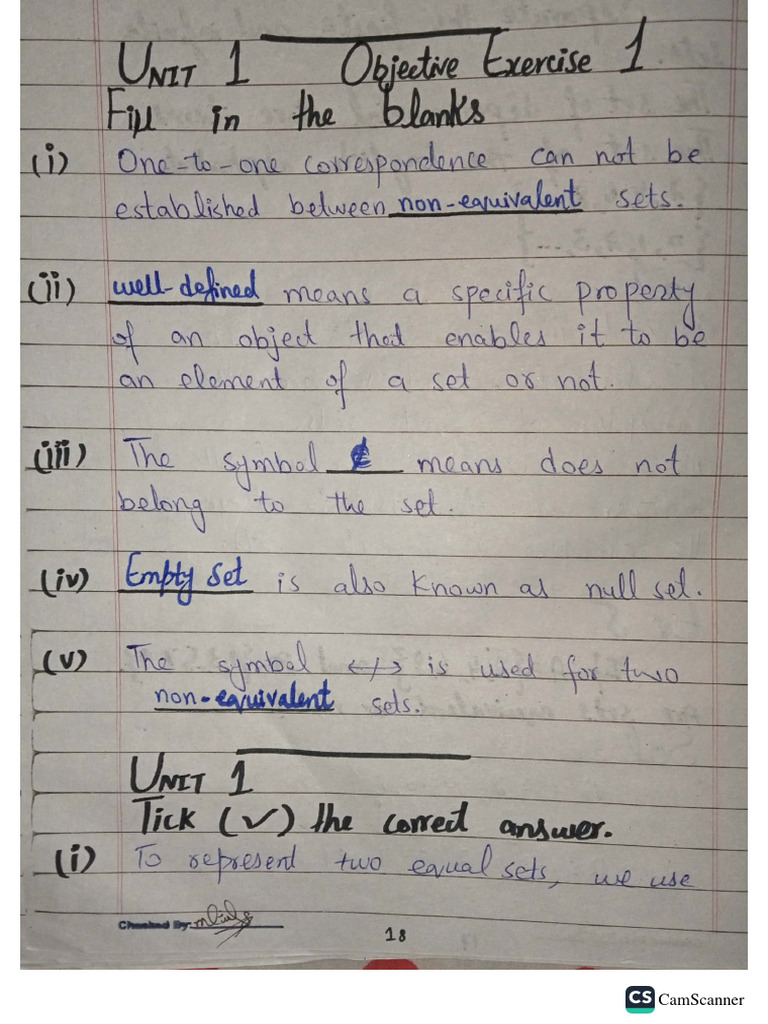 UNIT 1 Objective Exercise 1
Fill in the blanks
(i) One-to-one correspondence can not be
established between non-equivalent sets.
(ii) well-defined means a specific property
of an object that enables it to be
an element of a set or not.
(iii) The symbol ∉ means does not
belong to the set.
(iv) Empty set is also known as null set.
(v) The symbol ↮ is used for two
non-equivalent sets.
UNIT 1
Tick (✓) the correct answer.
(i) To represent two equal sets, we use
Checked By:
18
CS CamScanner